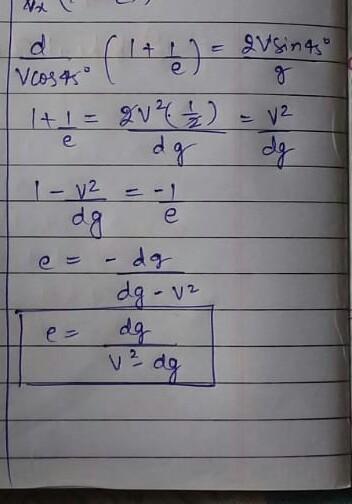 d/Vcos45° (1 + 1/e) = 2Vsin45°/g
1 + 1/e = 2V²(·1/2)/dg = V²/dg
1 - V²/dg = -1/e
e = - dg/dg - V²
e = dg/V² - dg